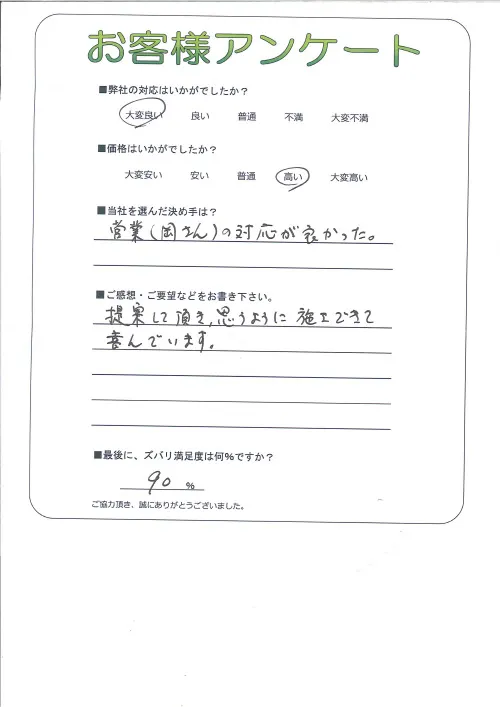 お客様アンケート
■弊社の対応はいかがでしたか？
大変良い 良い 普通 不満 大変不満
■価格はいかがでしたか？
大変安い 安い 普通 高い 大変高い
■当社を選んだ決め手は？
営業(岡さん)の対応が良かった。
■ご感想・ご要望などをお書き下さい。
提案して頂き,思うように施工できて
喜んでいます。
■最後に、ズバリ満足度は何%ですか？
90 %
ご協力頂き、誠にありがとうございました。